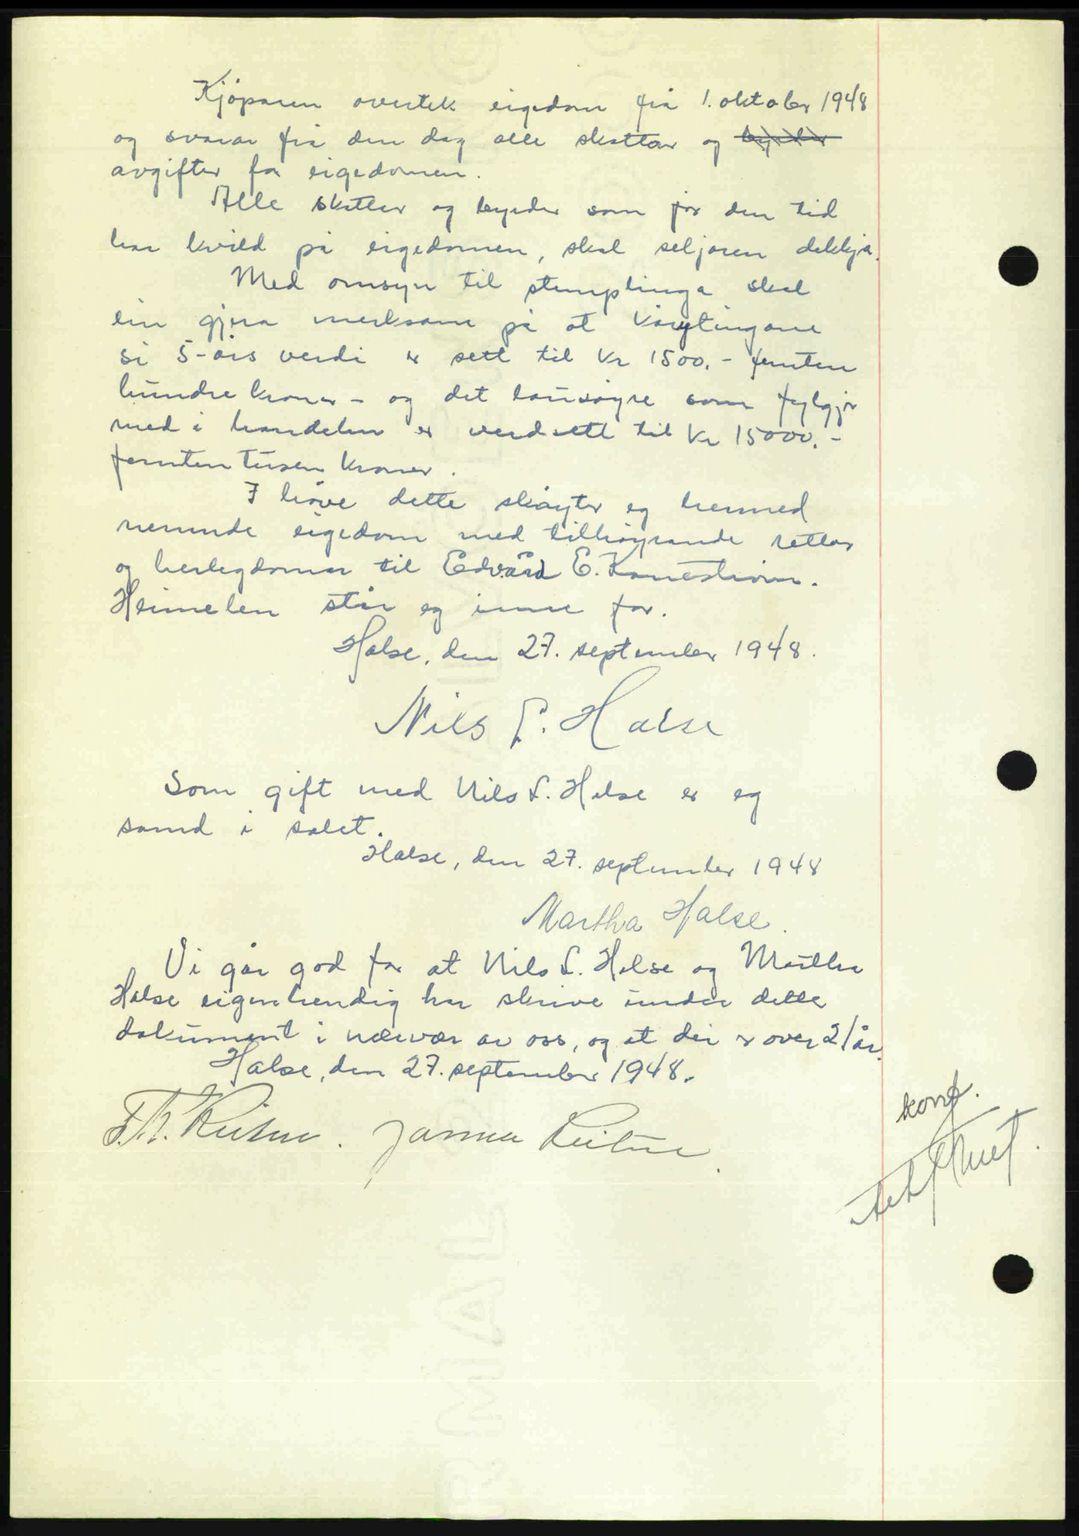 Kjøparen overtek eigedom frå 1. oktober 1948
og svarar frå den dag alle skattar og
avgifter for eigedomen.
Alle skatter og byrder som før den tid
har kvild på eigedomen, skal seljaren dekkja.
Med omsyn til stemplinga skal
ein gjera merksam på at
si 5-års verdi er sett til kr 1500.- femten
hundre kroner - og det lausøyre som fylgjer
med i handelen er verdsett til kr 15000.-
femten tusen kroner.
I høve dette skøyter eg hermed
nemnde eigedom med tilhøyrande rettar
og herlegdomar til Edvard E. Kanestrøm.
Heimelen står eg inne for.
Halse, den 27. september 1948.
Nils L. Halse
Som gift med Nils L. Halse er eg
samd i salet.
Halse, den 27. september 1948
Martha Halse.
Vi går god for at Nils L. Halse og Martha
Halse eigenhendig har skrive under dette
dokument i nærvær av oss, og at dei er over 21 år.
Halse, den 27. september 1948.
konf.